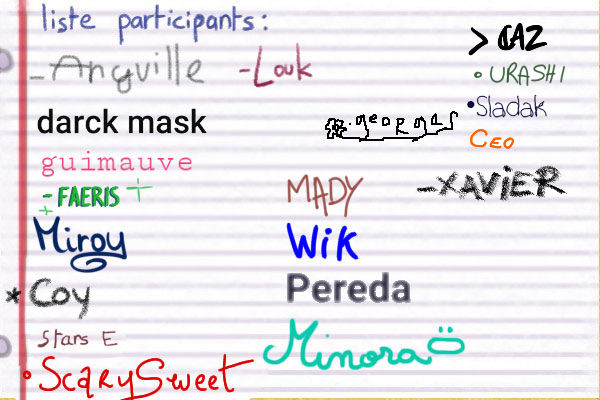 liste participants:
- Anguille
- Louk
> CAZ
• URASHI
• Sladak
CEO
darck mask
georges
guimauve
- FAERIS
MADY
- XAViER
Miroy
Wik
* Coy
Pereda
Stars E
Minora
• ScarySweet